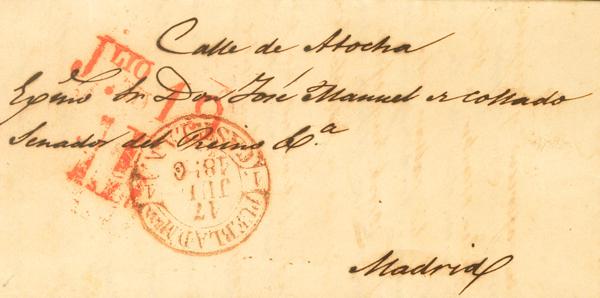 Calle de Atocha
Exmo Sr Don José Manuel Collado
Senador del Reino &.a
Madrid
JLIO.
18
17
JUL
PUEBLA D